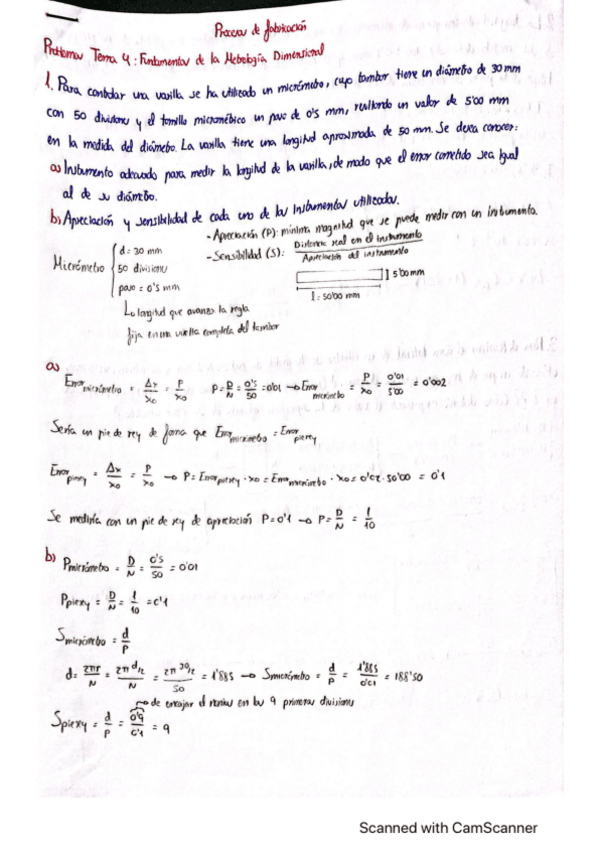 Procesos de fabricación
Problemas Tema 4: Fundamentos de la Metrología Dimensional
1. Para controlar una varilla se ha utilizado un micrómetro, cuyo tambor tiene un diámetro de 30 mm
con 50 divisiones y el tornillo micrométrico un paso de 0's mm, resultando un valor de 5'00 mm
en la medida del diámetro. La varilla tiene una longitud aproximada de 50 mm. Se desea conocer:
a) Instrumento adecuado para medir la longitud de la varilla, de modo que el error cometido sea igual
al de su diámetro.
b) Apreciación y sensibilidad de cada uno de los instrumentos utilizados.
- Apreciación (P): mínima magnitud que se puede medir con un instrumento.
- Sensibilidad (S): Distancia real en el instrumento / Apreciación del instrumento
Micrómetro { d = 30 mm
50 divisiones
paso = 0's mm
5'00 mm
l = 50'00 mm
Longitud que avanza la regla
fija en una vuelta completa del tambor
a)
Error micrómetro = Δx/x0 = P/x0 P = D/N = 0's/50 = 0'01 → Error micrómetro = P/x0 = 0'01/5'00 = 0'002
Sería un pie de rey de forma que Error micrómetro = Error pierey
Error pierey = Δx/x0 = P/x0 → P = Error pierey · x0 = Error micrómetro · x0 = · 50'00 = 0'1
Se mediría con un pie de rey de apreciación P = 0'1 → P = D/N = 1/10
b) P micrómetro = D/N = 0's/50 = 0'01
P pierey = D/N = 1/10 = 0'1
S micrómetro = d/P
d = 2πr/N = 2π d/2/N = 2π 30/2/50 = 1'885 → S micrómetro = d/P = 1'885/0'01 = 188'50
→ de encajar el nonius en las 9 primeras divisiones
S pierey = d/P = 0'9/0'1 = 9
Scanned with CamScanner